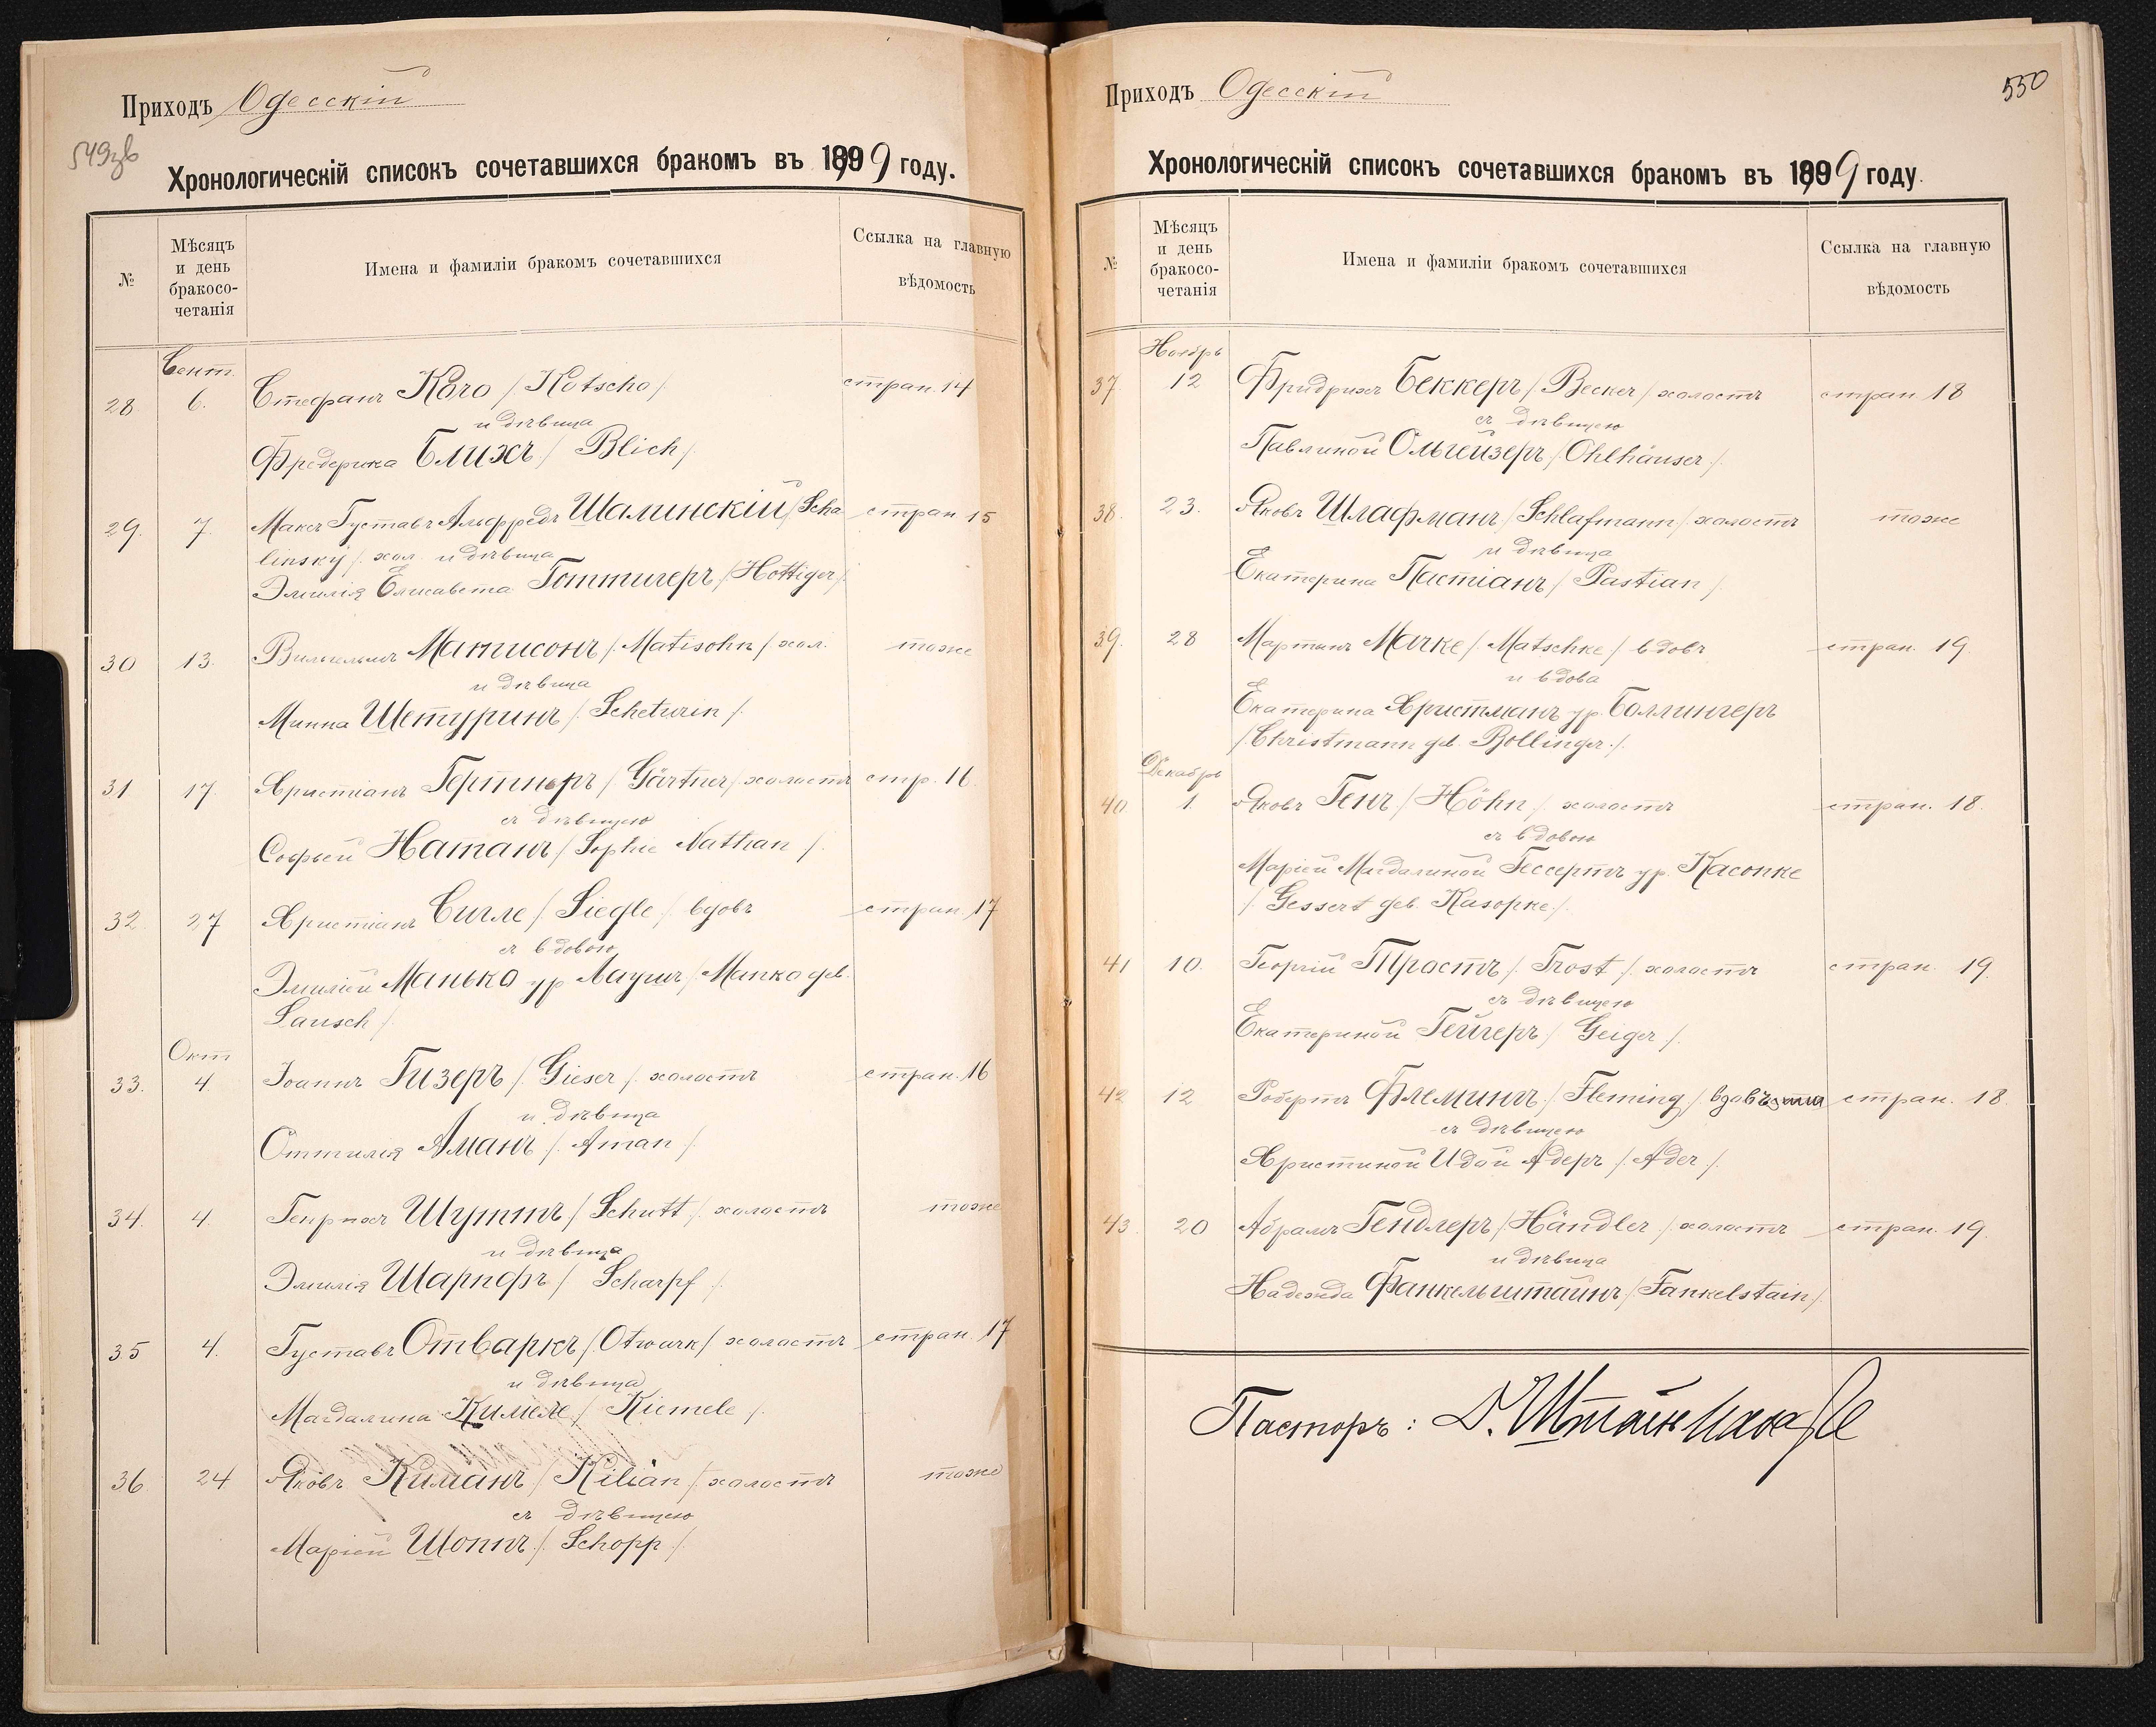 Приходъ Одесскій
549зв
Хронологическій списокъ сочетавшихся бракомъ въ 1899 году.
№
Мѣсяцъ
и день
бракосо-
четанія
Имена и фамиліи бракомъ сочетавшихся
Ссылка на главную
вѣдомость
Сент.
28. 6. Стефанъ Кочо /Kotscho/ стран. 14
и дѣвица
Фредерика Блихъ /Blich/
29. 7. Максъ Густавъ Альфредъ Шалинскій /Scha стран 15
linsky/. хол. и дѣвица
Эмилія Елисавета Готтигеръ /Hottiger/.
30 13. Вильгельмъ Матисонъ /. Matisohn / хол. тоже
и дѣвица
Минна Шетуринъ /. Scheturin /.
31 17. Христіанъ Гертнеръ / Gärtner, холостъ стр. 16
съ дѣвицею
Софьей Натанъ / Sophie Nathan /.
32. 27 Христіанъ Сигле / Siegle / вдовъ стран. 17
съ вдовою
Эмиліей Манько ур Лаушъ / Manko geb.
Lausch /.
Окт
33. 4. Іоаннъ Гизеръ /. Gieser /. холостъ стран. 16
и дѣвица
Оттилія Аманъ /. Aman /.
34. 4. Генрихъ Шуттъ / Schutt /. холостъ тоже
и дѣвица
Эмилія Шарпфъ / Scharpf /.
35 4. Густавъ Отваркъ /. Otwark / холостъ стран. 17
и дѣвица
Магдалина Кимеле / Kiemele /.
36 24 Яковъ Киліанъ / Kilian /. холостъ тоже
съ дѣвицею
Маріей Шоппъ /. Schopp /.
Приходъ Одесскій
550
Хронологическій списокъ сочетавшихся бракомъ въ 1899 году.
№
Мѣсяцъ
и день
бракосо-
четанія
Имена и фамиліи бракомъ сочетавшихся
Ссылка на главную
вѣдомость
Ноябрь
37. 12 Фридрихъ Беккеръ / Becker / холостъ стран 18
съ дѣвицею
Павлиной Ольгейзеръ /. Ohlhäuser /.
38. 23. Яковъ Шлафманъ / Schlafmann /. холостъ тоже
и дѣвица
Екатерина Пастіанъ / Pastian /.
39. 28 Мартинъ Мачке /. Matschke / вдовъ стран. 19
и вдова
Екатерина Христманъ ур. Боллингеръ
/. Christmann geb. Bollinger /.
Декабрь
40 1. Яковъ Генъ / Höhn /. холостъ стран. 18.
съ вдовою
Маріей Магдалиной Гессертъ ур. Касопке
/. Gessert geb. Kasopke /.
41 10. Георгій Тростъ /. Trost /. холостъ стран. 19.
съ дѣвицею
Екатериной Гейгеръ / Geiger /.
42 12 Робертъ Флемингъ /. Fleming /. вдовъ стран. 18
съ дѣвицею
Христиной Идой Адеръ /. Ader /.
43. 20 Абрамъ Гендлеръ /. Händler /. холостъ стран. 19
и дѣвица
Надежда Фанкельштайнъ / Fankelstain /.
Пасторъ: